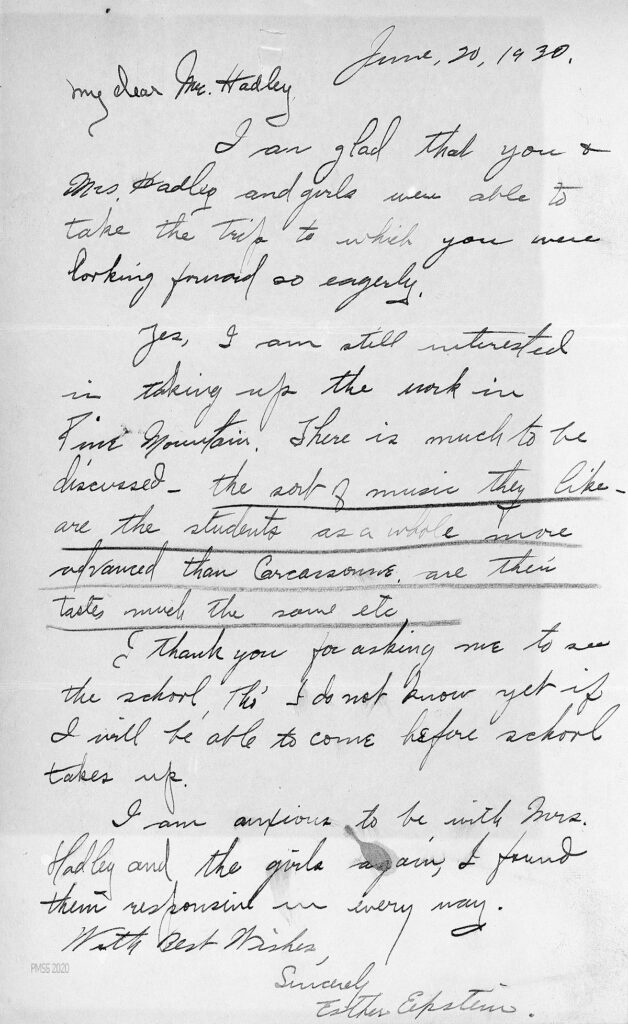 June, 20, 1930.
My dear Mr. Hadley
I am glad that you &
Mrs. Hadley and girls were able to
take the trip to which you were
looking forward so eagerly.
Yes, I am still interested
in taking up the work in
Pine Mountain. There is much to be
discussed - the sort of music they like -
are the students as a whole more
advanced than Carcassonne, are their
tastes much the same etc
I thank you for asking me to see
the school, Tho' I do not know yet if
I will be able to come before school
takes up.
I am anxious to be with Mrs.
Hadley and the girls again, I found
them responsive in every way.
With Best Wishes,
Sincerely
Esther Epstein.
PMSS 2020